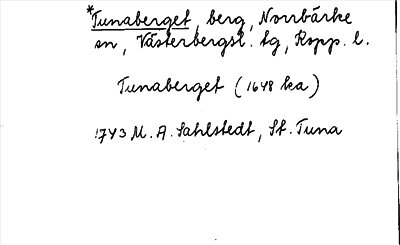 *Tunaberget, berg, Norrbärke
sn, Västerbergsl. tg, Kopp. l.
Tunaberget (1648 ka)
1743 M. A. Sahlstedt, St. Tuna